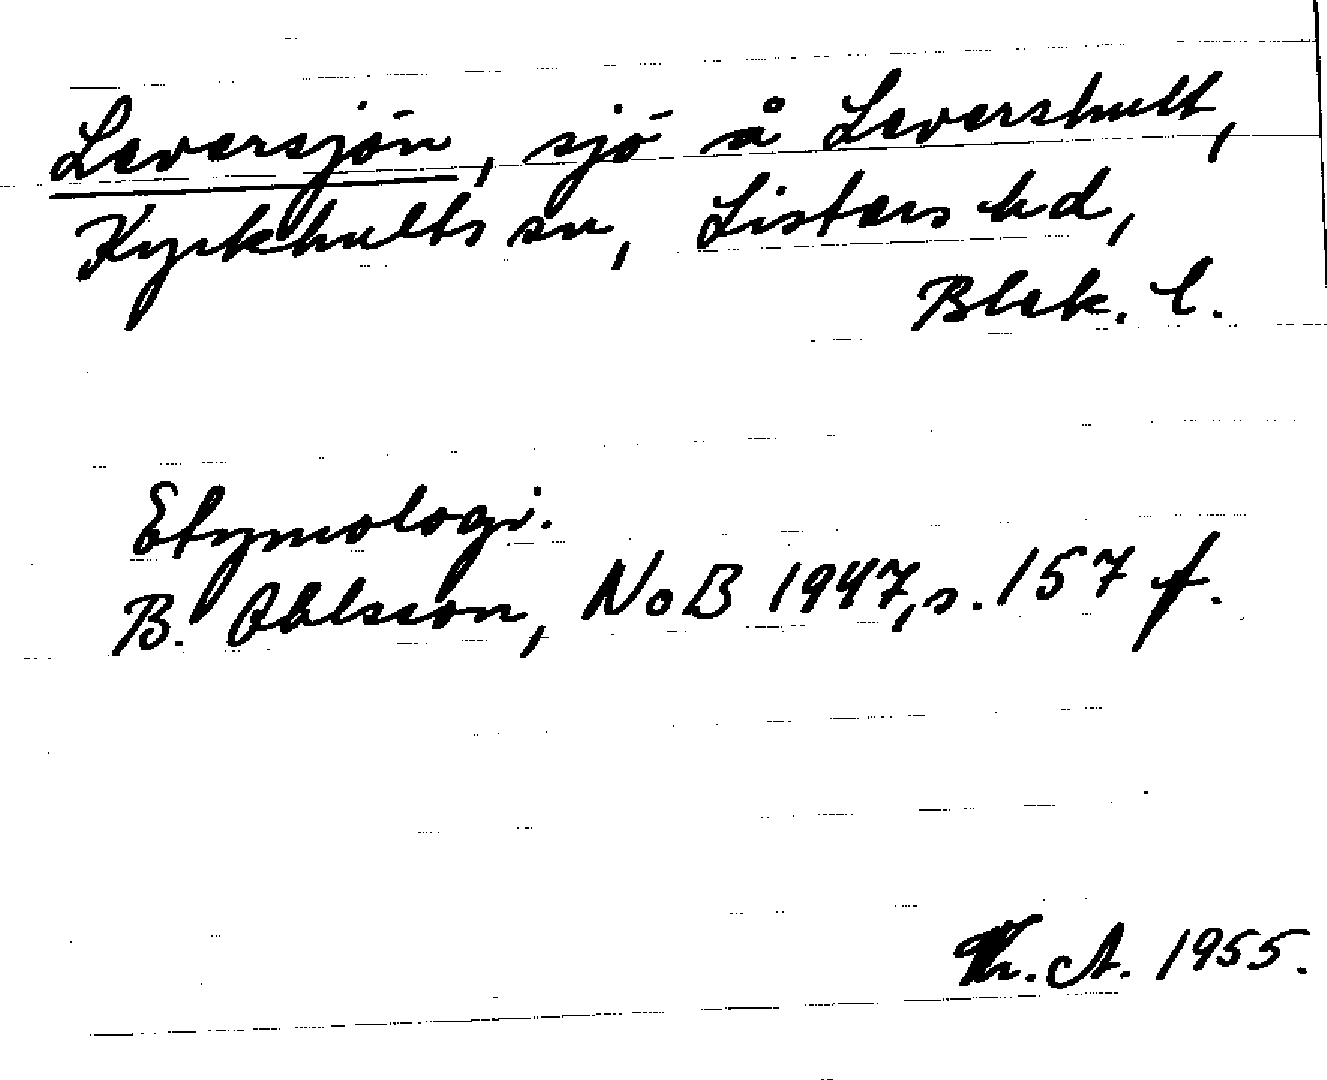 Leversjön, sjö å Levershult,
Kyrkhults sn, Listers hd,
Blek. l.
Etymologi.
B. Ohlsson, NoB 1947, s. 157 f.
Th. A. 1955.